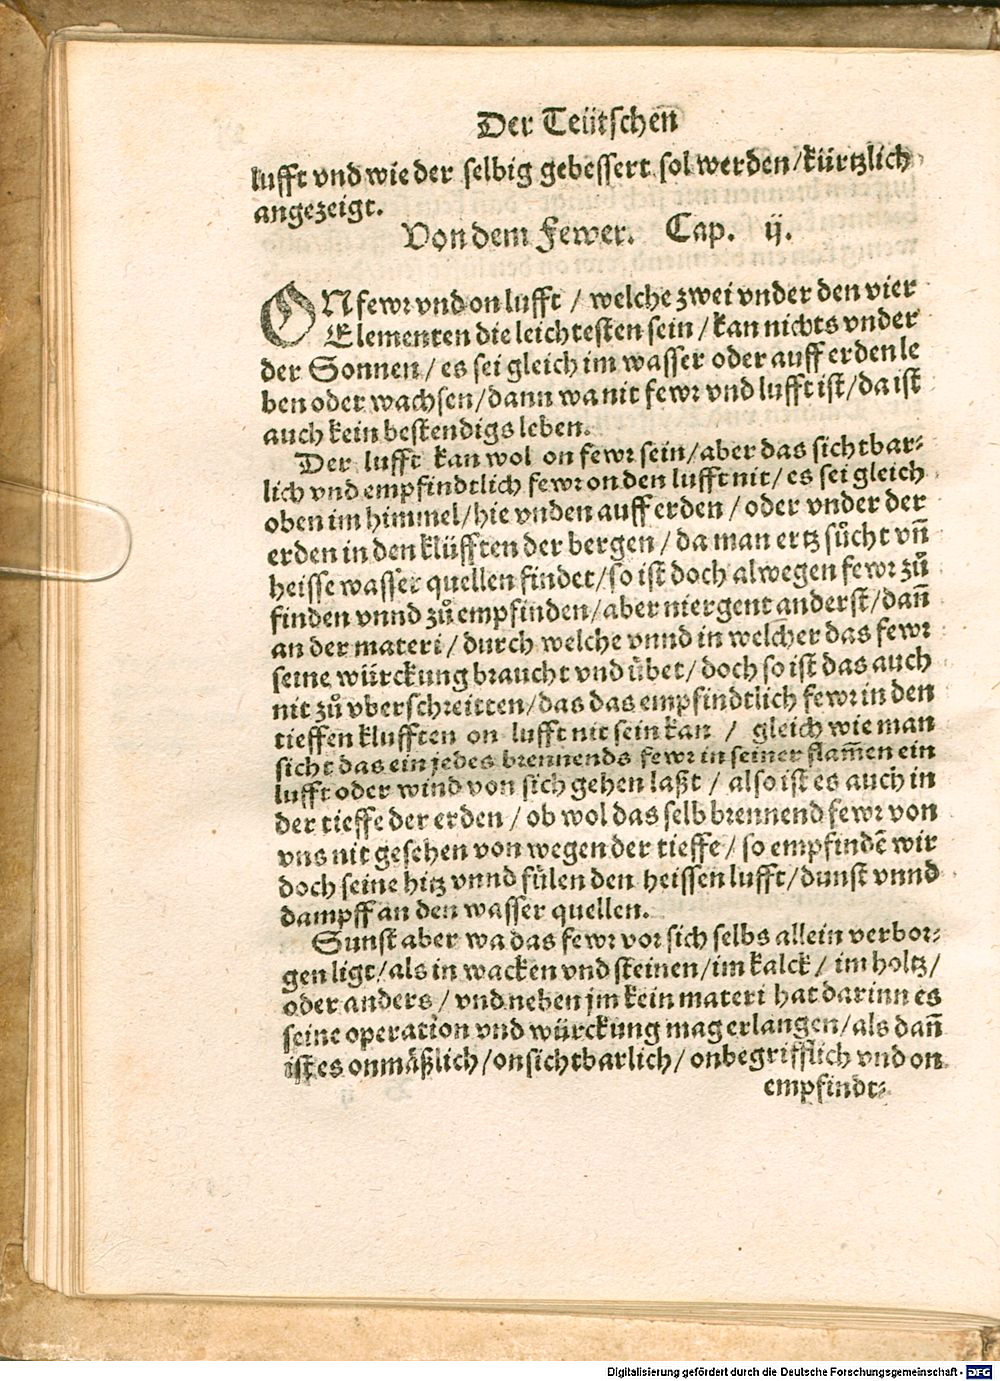 Der Teütschen̄
lufft vnd wie der selbig gebessert sol werden / kürtzlich
angezeigt.
Von dem Fewer. Cap. ij.
ON fewr vnd on lufft / welche zwei vnder den vier
Elementen die leichtesten sein / kan nichts vnder
der Sonnen / es sei gleich im wasser oder auff erden le
ben oder wachsen / dann wa nit fewr vnd lufft ist / da ist
auch kein bestendigs leben.
Der lufft kan wol on fewr sein / aber das sichtbar⸗
lich vnd empfindtlich fewr on den lufft nit / es sei gleich
oben im himmel / hie vnden auff erden / oder vnder der
erden in den klüfften der bergen / da man ertz sůcht vñ
heisse wasser quellen findet / so ist doch alwegen fewr zů
finden vnnd zů empfinden / aber niergent anderst / dañ
an der materi / durch welche vnnd in welcher das fewr
seine würckung braucht vnd übet / doch so ist das auch
nit zů vberschreitten / das das empfindtlich fewr in den
tieffen klufften on lufft nit sein kan / gleich wie man
sicht das ein jedes brennends fewr in seiner flam̄en ein
lufft oder wind von sich gehen laßt / also ist es auch in
der tieffe der erden / ob wol das selb brennend fewr von
vns nit gesehen von wegen der tieffe / so empfindē wir
doch seine hitz vnnd fülen den heissen lufft / dunst vnnd
dampff an den wasser quellen.
Sunst aber wa das fewr vor sich selbs allein verbor⸗
gen ligt / als in wacken vnd steinen / im kalck / im holtz /
oder anders / vnd neben jm kein materi hat darinn es
seine operation vnd würckung mag erlangen / als dañ
ist es onmäßlich / onsichtbarlich / onbegrifflich vnd on
empfindt⸗
Digitalisierung gefördert durch die Deutsche Forschungsgemeinschaft - DFG